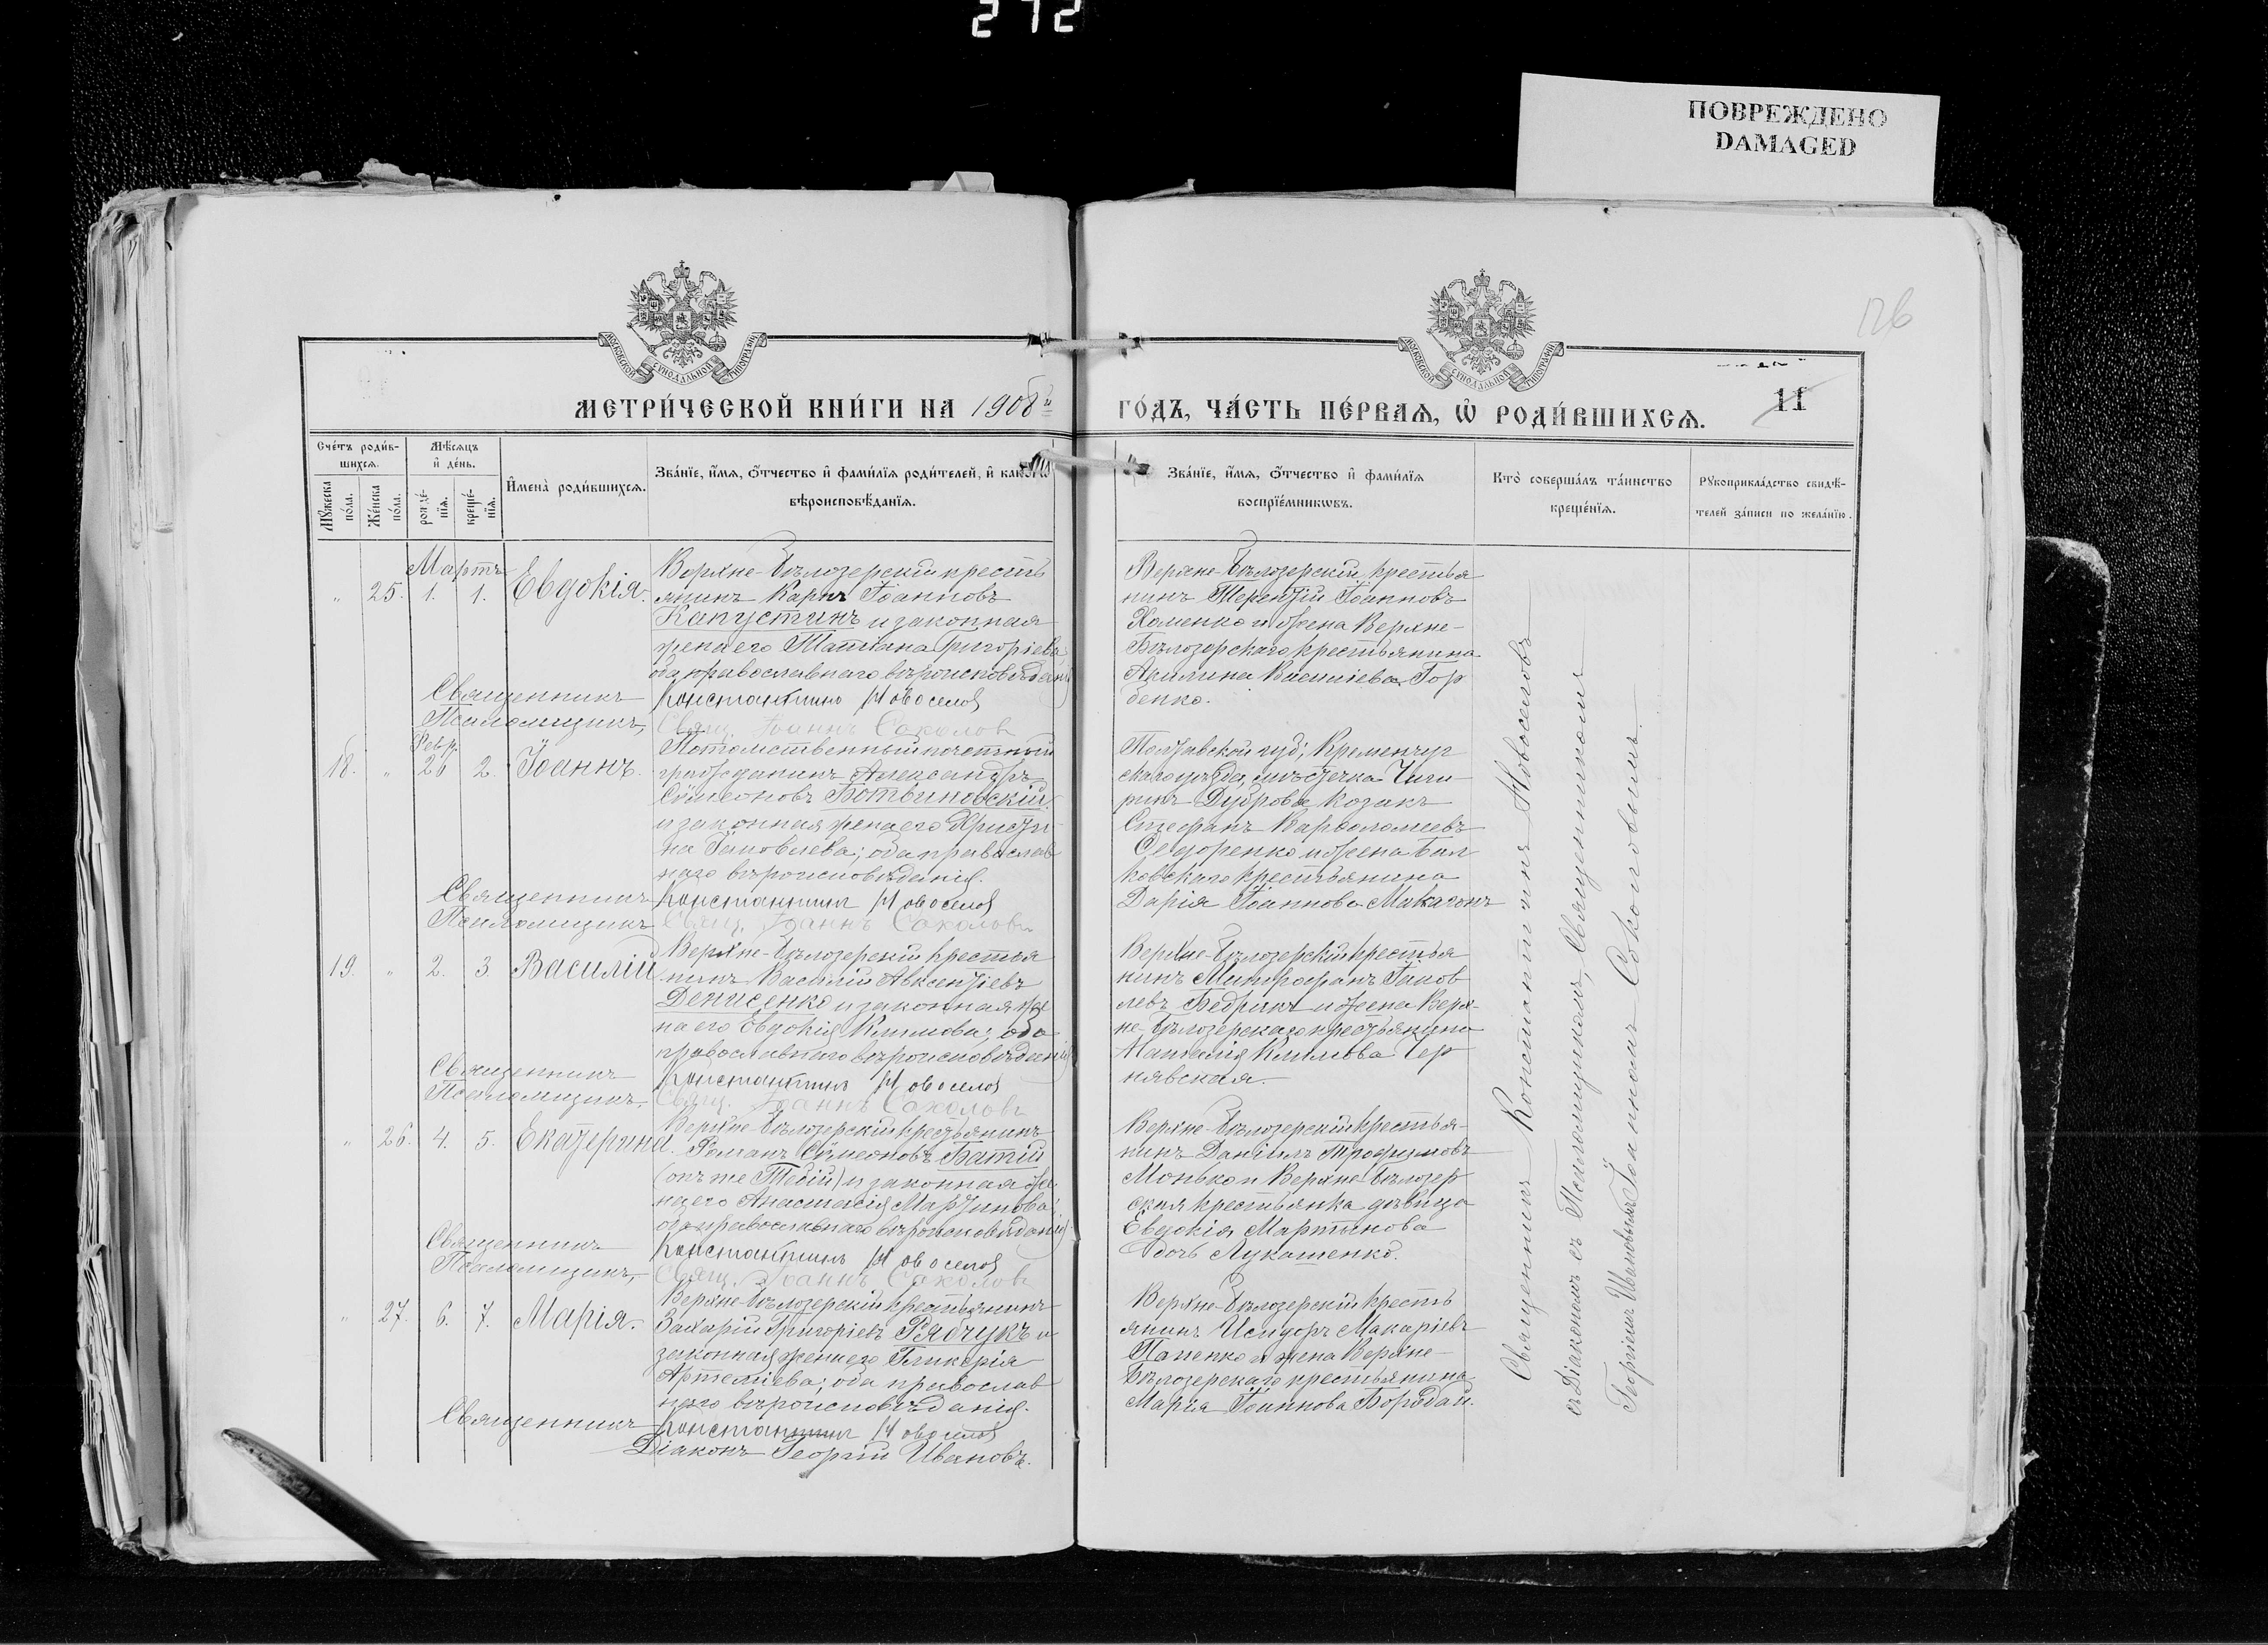 272
ПОВРЕЖДЕНО
DAMAGED
126
МОСКОВСКОЙ СѴНОДАЛЬНОЙ ТИПОГРАФІИ
МОСКОВСКОЙ СѴНОДАЛЬНОЙ ТИПОГРАФІИ
МЕТРИ́ЧЕСКОЙ КНИ́ГИ НА 1908й
ГО́ДЪ, ЧА́СТЬ ПЕ́РВАѦ, Ѡ҆ РОДИ́ВШИХСѦ.
11
Сче́тъ роди́в-
шихсѧ.
Мꙋжеска по́ла.
Же́нска по́ла.
Мѣ́сѧцъ
и҆ де́нь.
рожде́-
нїѧ.
креще́-
нїѧ.
И҆мена̀ роди́вшихсѧ.
Зва́нїе, и҆́мѧ, ѻ҆́тчество и҆ фами́лїѧ роди́телей, и҆ како́гѡ
вѣроисповѣ́данїѧ.
Зва́нїе, и҆́мѧ, ѻ҆́тчество и҆ фами́лїѧ
воспрїе́мникѡвъ.
Кто̀ соверша́лъ та́инство
креще́нїѧ.
Рꙋкоприкла́дство свидѣ́-
телей за́писи по жела́нїю.
Мартъ
" 25. 1. 1. Евдокія.
Верхне-Бѣлозерскій кресть
янинъ Карпъ Іоанновъ
Капустинъ и законная
жена его Татіана Григоріева
оба православнаго вѣроисповѣданія
Священникъ Константинъ Новоселов
Псаломщикъ, Свящ. Іоаннъ Соколов
Верхне-Бѣлозерскій крестья
нинъ Терентій Іоанновъ
Хоменко и жена Верхне-
Бѣлозерскаго крестьянина
Акилина Василіева Гор
бенко.
Февр.
18. " 26 2. Іоаннъ.
Потомственный почетный
гражданинъ Александръ
Сѵмеоновъ Ботвиновскій
и законная жена его Христи
на Іаковлева; оба православ
наго вѣроисповѣданія.
Священникъ Константинъ Новоселов
Псаломщикъ Свящ. Іоаннъ Соколовъ
Полтавской губ., Кременчуг
скаго уѣзда, мѣстечка Чиги
ринъ Дуброва козакъ
Стефанъ Варѳоломеевъ
Сидоренко и жена Бал
ковскаго крестьянина
Дарія Іоаннова Макагонъ
19. " 2. 3. Василій
Верхне-Бѣлозерскій крестья
нинъ Василій Авксентіевъ
Денисенко и законная же
на его Евдокія Климова; оба
православнаго вѣроисповѣданія
Священникъ Константинъ Новоселов
Псаломщикъ, Свящ. Іоаннъ Соколовъ
Верхне-Бѣлозерскій крестья
нинъ Митрофанъ Іаков
левъ Бедрикъ и жена Верх-
не-Бѣлозерскаго крестьянина
Наталія Климова Чер
нявская.
" 26. 4. 5. Екатерина.
Верхне-Бѣлозерскій крестьянинъ
Романъ Сѵмеоновъ Батій
(онъ же Тебій) и законная же
на его Анастасія Мартинова;
оба православнаго вѣроисповѣданія.
Священникъ Константинъ Новоселов
Псаломщикъ, Свящ. Іоаннъ Соколовъ
Верхне-Бѣлозерскій крестья-
нинъ Даніилъ Трофимовъ
Монько и Верхне-Бѣлозер
ская крестьянка дѣвица
Евдокія Мартинова
дочь Лукашенко.
" 27. 6. 7. Марія.
Верхне-Бѣлозерскій крестьянинъ
Захарій Григоріевъ Рябчукъ и
законная жена его Гликерія
Артеміева; оба православ
наго вѣроисповѣданія.
Священникъ Константинъ Новоселов
Діаконъ Георгій Ивановъ.
Верхне-Бѣлозерскій кресть
янинъ Исидоръ Макаріевъ
Папенко и жена Верхне-
Бѣлозерскаго крестьянина
Марѳа Іоаннова Бородай.
Священникъ Константинъ Новоселовъ
съ Діакономъ съ Псаломщикомъ, Священникомъ
Георгіемъ Ивановымъ Іоанномъ Соколовымъ.